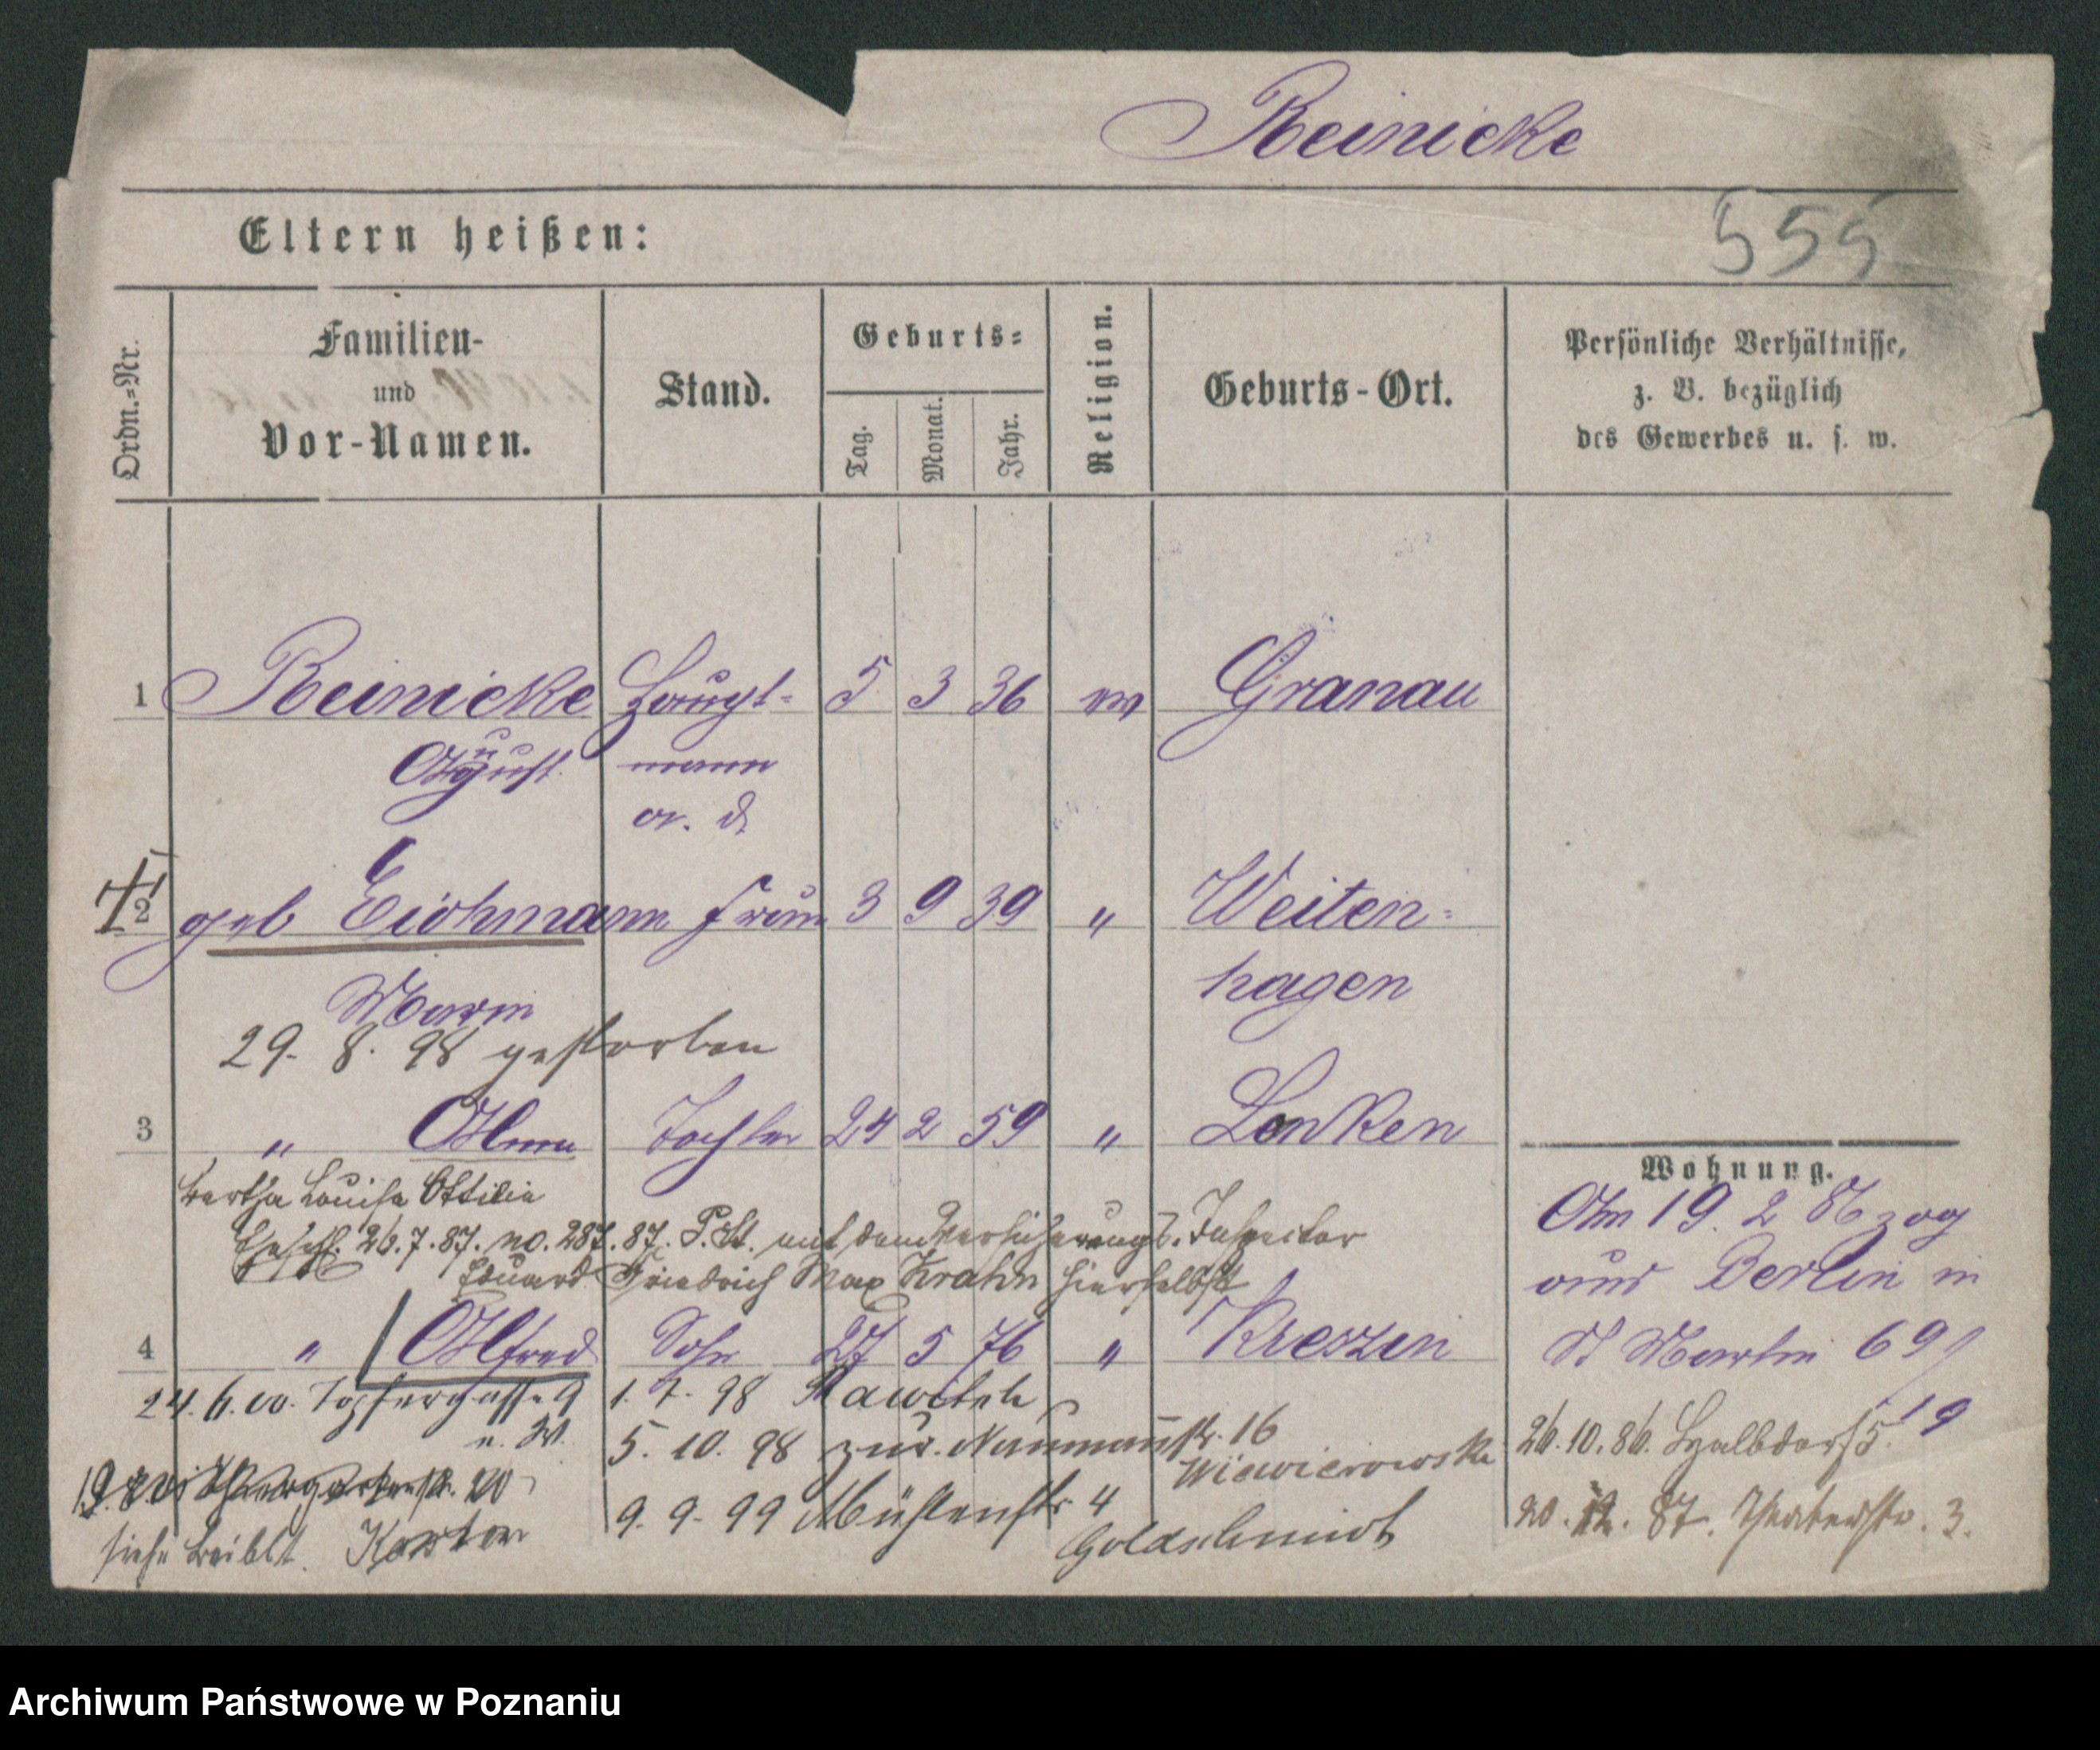 Reinicke
Eltern heißen:
555
Ordn.=Nr.
Familien-
und
Vor-Namen.
Stand.
Geburts=
Tag.
Monat.
Jahr.
Religion.
Geburts-Ort.
Persönliche Verhältnisse,
z. B. bezüglich
des Gewerbes u. s. w.
1 Reinicke Haupt= 5 3 36 ev Granau
August mann
a. D
2 geb Eichmann Frau 3 9 39 " Weiten=
Marie hagen
29. 8. 98 gestorben
3 " Anna Tochter 24 2 59 " Lenken
Bertha Louise Ottilie
Ehesch. 26.7.87. no. 287.87. P. St. mit dem Versicherungs. Inspector
Eduard Friedrich Max Krahn hierselbst
4 " Alfred Sohn 27 5 76 " Kreszin
24. 6. 00. Töpfergasse 9
u. W.
siehe Beiblt.
1. 7. 98 Rawitsch
5. 10. 98 zur. Naumannstr. 16
Wiewiorowski
9. 9. 99 Mühlenstr 4
Goldschmidt
Wohnung.
Am 19. 2 86 zog
aus Berlin in
St Martin 69/
19
26.10.86. Halbdorf 5.
20. 12. 87. Theaterstr. 3.
Archiwum Państwowe w Poznaniu